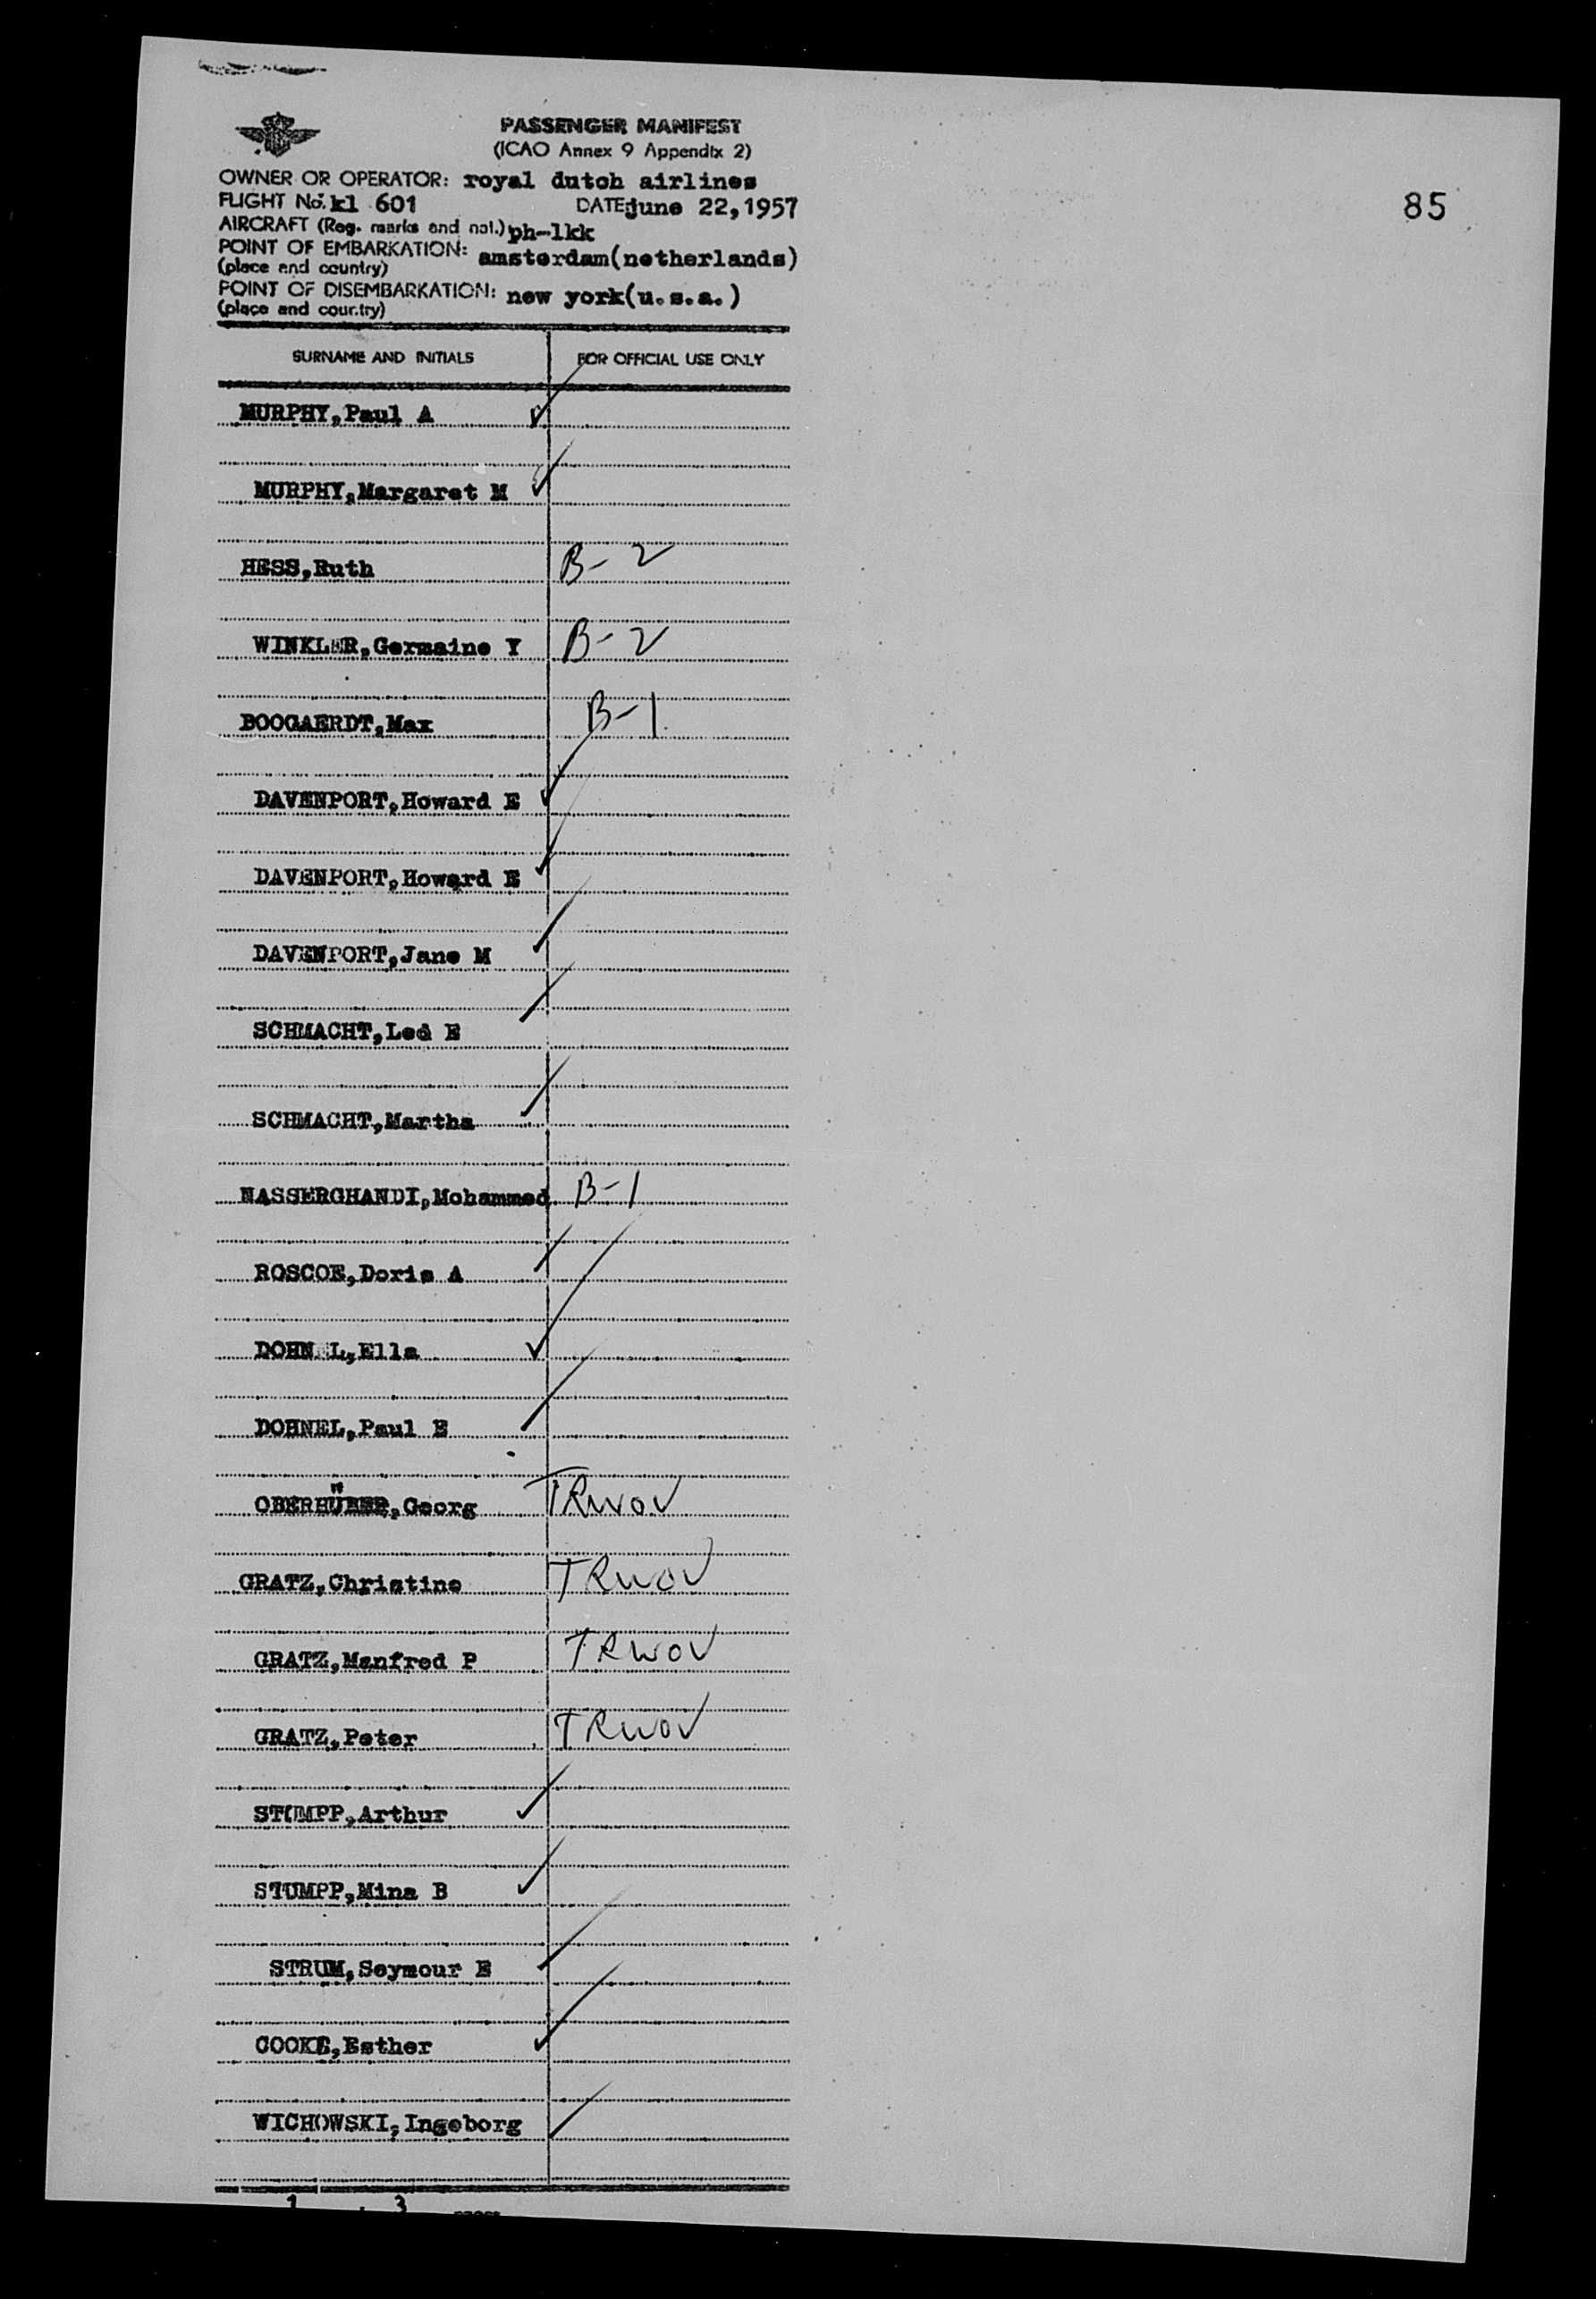 PASSENGER MANIFEST
(ICAO Annex 9 Appendix 2)
OWNER OR OPERATOR: royal dutch airlines
FLIGHT No. kl 601 DATE june 22,1957
85
AIRCRAFT (Reg. marks and nat.) ph-lkk
POINT OF EMBARKATION: amsterdam(netherlands)
(place and country)
POINT OF DISEMBARKATION: new york(u.s.a.)
(place and country)
SURNAME AND INITIALS FOR OFFICIAL USE ONLY
MURPHY,Paul A
MURPHY,Margaret M
HESS,Ruth B-2
WINKLER,Germaine Y B-2
BOOGAERDT,Max B-1
DAVENPORT,Howard E
DAVENPORT,Howard E
DAVENPORT,Jane M
SCHMACHT,Leo E
SCHMACHT,Martha
NASSERGHANDI,Mohammed B-1
ROSCOE,Doris A
DOHNEL,Ella
DOHNEL,Paul E
Georg TRWOV
GRATZ,Christine TRWOV
GRATZ,Manfred P TRWOV
GRATZ,Peter TRWOV
STUMPP,Arthur
STUMPP,Mina B
STRUM,Seymour E
COOKE,Esther
WICHOWSKI,Ingeborg
1 3